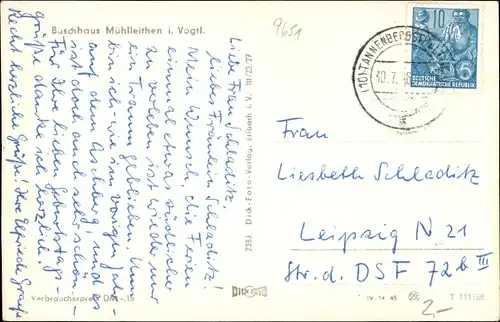 Buschhaus Mühlleithen i. Vogtl.
9651
Liebe Frau Schladitz,
liebes Fräulein Schladitz!
Mein Wunsch, die Ferien
einmal etwas südlicher
zu verleben ist wieder nur
ein Traum geblieben. Nun
bin ich wie im vorigen Jahr
auf dem Aschberg, und es
ist doch auch sehr schön. –
Für Ihre lieben Geburtstags-
grüße danke ich herzlich.
Recht herzliche Grüße Ihre Elfriede
Verbraucherpreis DM -,15
2383 Dick-Foto-Verlag, Erlbach i. V. III/23/27
DICK FOTO
(10) TANNENBERGSTHAL
10.7.
10
5
DEUTSCHE
DEMOKRATISCHE REPUBLIK
Frau
Liesbeth Schladitz
Leipzig N 21
Str. d. DSF 72 b III
IV-14-45
T 111/56
2,-